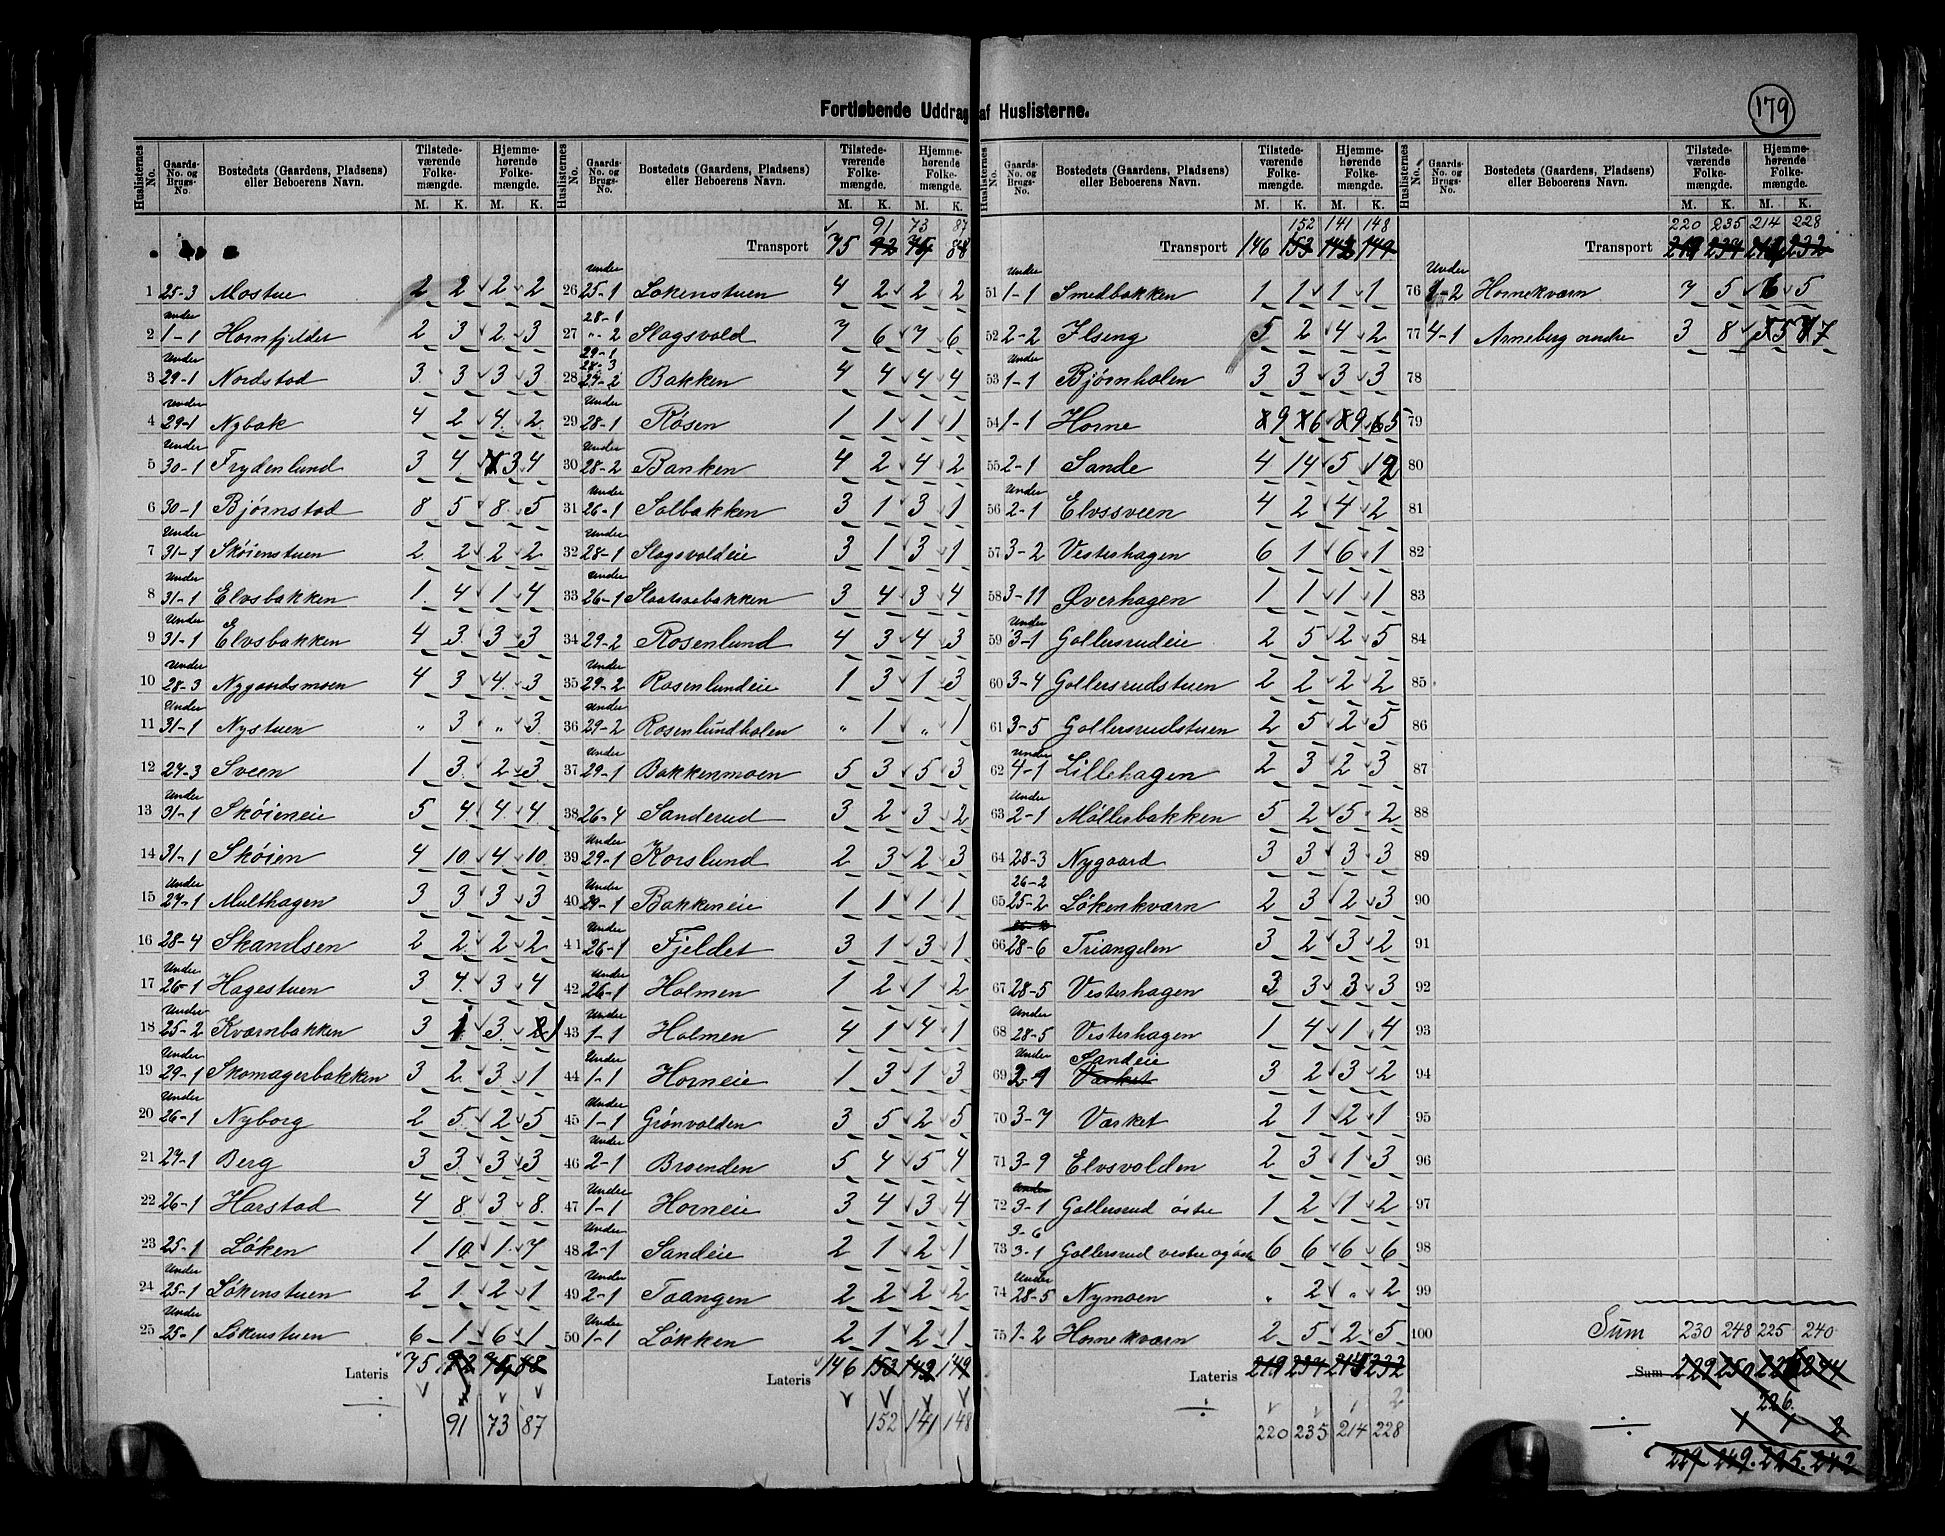 179
Fortløbende Uddrag af Huslisterne.
Huslisternes No. | Gaards-No. og Brugs-No. | Bostedets (Gaardens, Pladsens) eller Beboerens Navn. | Tilstedeværende Folkemængde. M. K. | Hjemmehørende Folkemængde. M. K.
1 25-3 Mostue 2 2 2 2
2 under 1-1 Hornfjeldet 2 3 2 3
3 Under 29-1 Nordstad 3 3 3 3
4 Under 29-1 Nybak 4 2 4 2
5 Under 30-1 Frydenlund 3 4 3 4
6 30-1 Bjørnstad 8 5 8 5
7 Under 31-1 Skøienstuen 2 2 2 2
8 Under 31-1 Elvsbakken 1 4 1 4
9 Under 31-1 Elvsbakken 4 3 3 3
10 Under 28-3 Nygaardsmoen 4 3 4 3
11 Under 31-1 Nystuen " 3 " 3
12 27-3 Sveen 1 3 2 3
13 Under 31-1 Skøieneie 5 4 4 4
14 31-1 Skøien 4 10 4 10
15 Under 27-1 Multhagen 3 3 3 3
16 28-4 Skandsen 2 2 2 2
17 Under 26-1 Hagestuen 3 4 3 4
18 Under 25-2 Kværnbakken 3 1 3 1
19 Under 29-1 Skomagerbakken 3 2 3 1
20 Under 26-1 Nyborg 2 5 2 5
21 27-1 Berg 3 3 3 3
22 26-1 Harstad 4 8 3 8
23 25-1 Løken 1 10 1 7
24 Under 25-1 Løkenstuen 2 1 2 1
25 Under 25-1 Løkenstuen 6 1 6 1
Lateris 75 92 75 88
91 73 87
Huslisternes No. | Gaards-No. og Brugs-No. | Bostedets (Gaardens, Pladsens) eller Beboerens Navn. | Tilstedeværende Folkemængde. M. K. | Hjemmehørende Folkemængde. M. K.
91 73 87
Transport 75 92 75 88
26 Under 25-1 Løkenstuen 4 2 2 2
27 28-1 "-2 Slagsvold 7 6 7 6
28 29-1 28-3 27-2 Bakken 4 4 4 4
29 Under 28-1 Røsen 1 1 1 1
30 Under 28-2 Banken 4 2 4 2
31 Under 26-1 Solbakken 3 1 3 1
32 Under 28-1 Slagsvoldeie 3 1 3 1
33 Under 26-1 Slaatsaabakken 3 4 3 4
34 29-2 Rosenlund 4 3 4 3
35 Under 29-2 Rosenlundeie 1 3 1 3
36 Under 29-2 Rosenlundholen " 1 " 1
37 Under 29-1 Bakkenmoen 5 3 5 3
38 26-4 Sanderud 3 2 3 2
39 Under 29-1 Korslund 2 3 2 3
40 Under 29-1 Bakkeneie 1 1 1 1
41 Under 26-1 Fjeldet 3 1 3 1
42 Under 26-1 Holmen 1 2 1 2
43 Under 1-1 Holmen 4 1 4 1
44 Under 1-1 Horneie 1 3 1 3
45 Under 1-1 Grønvolden 3 5 2 5
46 Under 2-1 Braenden 5 4 5 4
47 Under 1-1 Horneie 3 4 3 4
48 Under 2-1 Sandeie 2 1 2 1
49 Under 2-1 Taangen 2 2 2 2
50 Under 1-1 Løkken 2 1 2 1
Lateris 146 153 142 149
152 141 148
Huslisternes No. | Gaards-No. og Brugs-No. | Bostedets (Gaardens, Pladsens) eller Beboerens Navn. | Tilstedeværende Folkemængde. M. K. | Hjemmehørende Folkemængde. M. K.
152 141 148
Transport 146 153 142 149
51 Under 1-1 Smedbakken 1 1 1 1
52 2-2 Ilseng 5 2 4 2
53 Under 1-1 Bjørnholen 3 3 3 3
54 1-1 Horne 9 6 9 5
55 2-1 Sande 4 14 5 12
56 Under 2-1 Elvssveen 4 2 4 2
57 3-2 Vesterhagen 6 1 6 1
58 3-11 Øverhagen 1 1 1 1
59 Under 3-1 Gollersrudeie 2 5 2 5
60 3-4 Gollersrudstuen 2 2 2 2
61 3-5 Gollersrudstuen 2 5 2 5
62 under 4-1 Lillehagen 2 3 2 3
63 Under 2-1 Møllerbakken 5 2 5 2
64 28-3 Nygaard 3 3 3 3
65 26-2 25-2 Løkenkværn 2 3 2 3
66 28-6 Triangelen 3 2 3 2
67 28-5 Vesterhagen 3 3 3 3
68 Under 28-5 Vesterhagen 1 4 1 4
69 Under 2-1 Sandeie Værket 3 2 3 2
70 3-7 Værket 2 1 2 1
71 3-9 Elvsvolden 2 3 1 3
72 Under 3-1 Gollersrud østre 1 2 1 2
73 3-6 3-1 Gollersrud vestre og øste 6 6 6 6
74 Under 28-5 Nymoen " 2 " 2
75 1-2 Hornekværn 2 5 2 5
Lateris 219 234 215 232
220 235 214 228
Huslisternes No. | Gaards-No. og Brugs-No. | Bostedets (Gaardens, Pladsens) eller Beboerens Navn. | Tilstedeværende Folkemængde. M. K. | Hjemmehørende Folkemængde. M. K.
220 235 214 228
Transport 219 234 232
76 Under 1-2 Hornekværn 7 5 6 5
77 4-1 Arneberg nordre 3 8 5 7
78
79
80
81
82
83
84
85
86
87
88
89
90
91
92
93
94
95
96
97
98
99
100
Sum 230 248 225 240
Sum 229 250 244
226
229 249 225 242